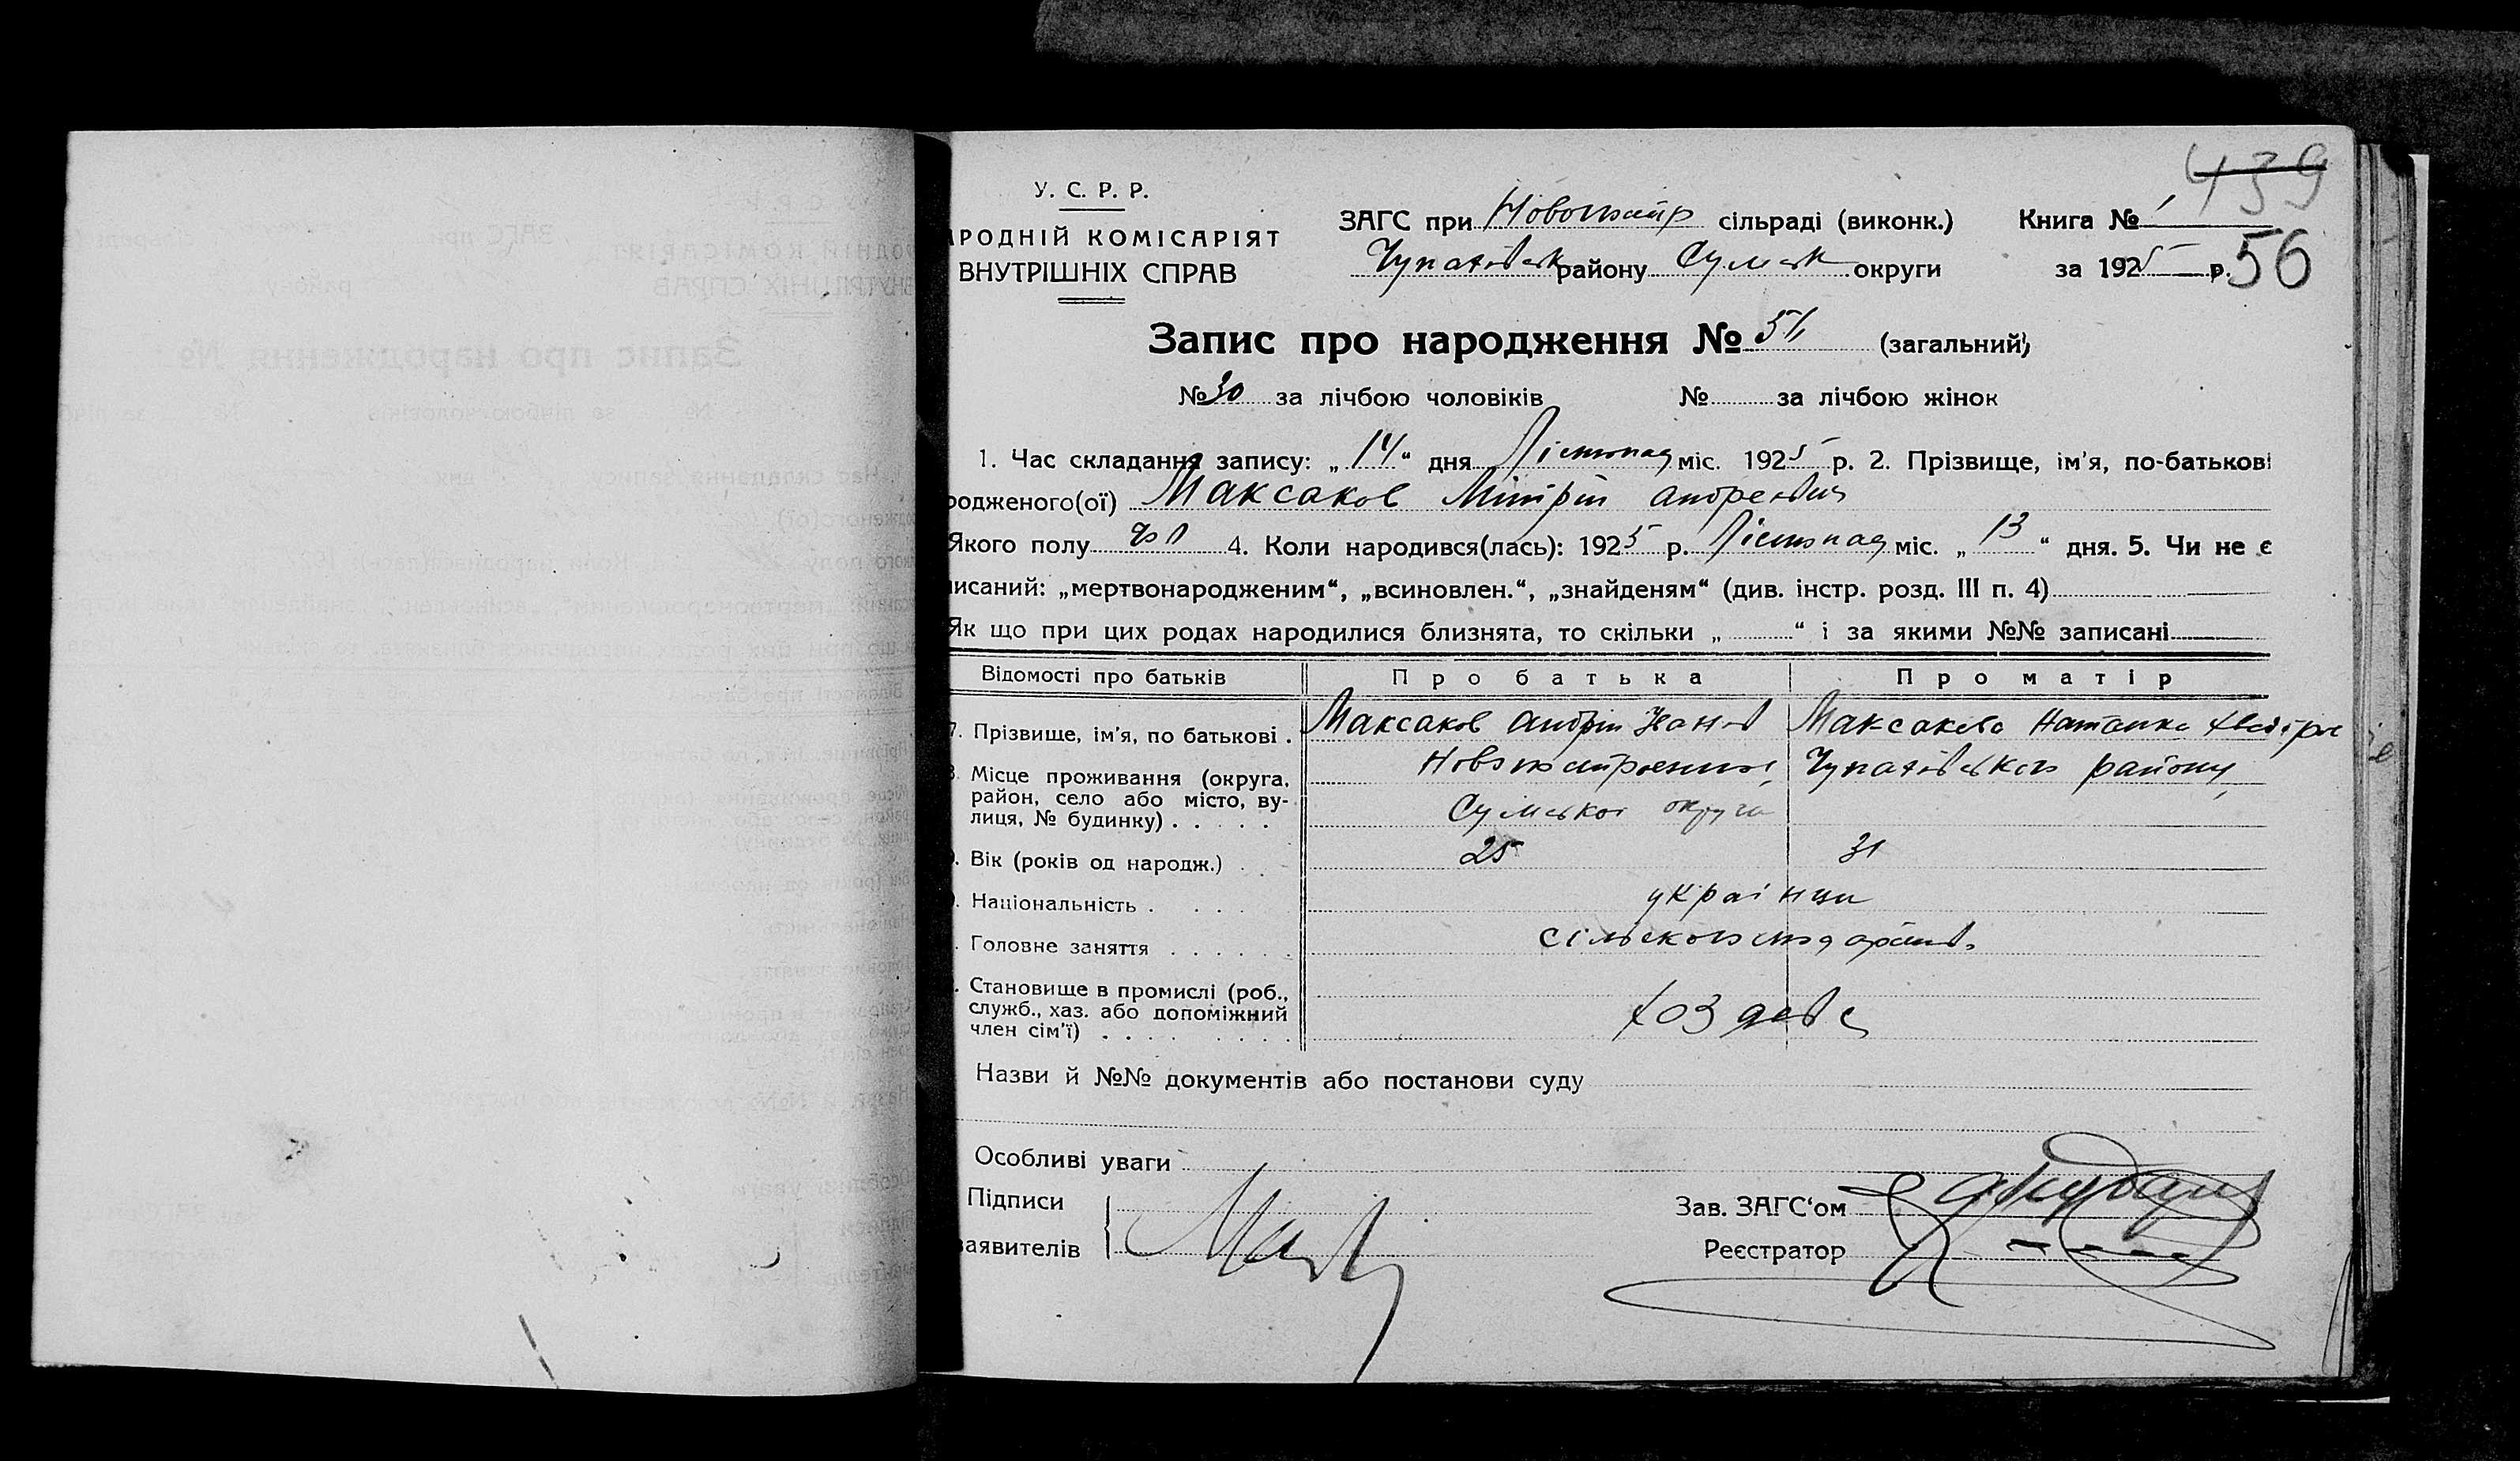 439
У. С. Р. Р.
РОДНІЙ КОМІСАРІЯТ
ВНУТРІШНІХ СПРАВ
ЗАГС при сільраді (виконк.)
району Сумськ округи
Книга № 1
за 1925 р. 56
Запис про народження № (загальний)
№ 30 за лічбою чоловіків № за лічбою жінок
1. Час складання запису: „ 14 “ дня Лістопад міс. 1925 р. 2. Прізвище, ім'я, по-батькові
родженого(ої) Максаков Андреевич
Якого полу чол 4. Коли народився(лась): 1925 р. Лістопад міс. „ 13 “ дня. 5. Чи не є
исаний: „мертвонародженим“, „всиновлен.“, „знайденям“ (див. інстр. розд. III п. 4)
Як що при цих родах народилися близнята, то скільки „ “ і за якими №№ записані
Відомості про батьків Про батька Про матір
7. Прізвище, ім'я, по батькові . Максаков Андрій Іванов Максакова Наталка
Місце проживання (округа, район, село або місто, ву-
лиця, № будинку) . . . . Сумської округи
району
Вік (років од народж.) . . 25 31
Національність . . . . українци
Головне заняття . . . . . .
Становище в промислі (роб.,
служб., хаз. або допоміжний
член сім'ї) . . . . . . . .
Назви й №№ документів або постанови суду
Особливі уваги
Підписи
заявителів
Зав. ЗАГС'ом
Реєстратор